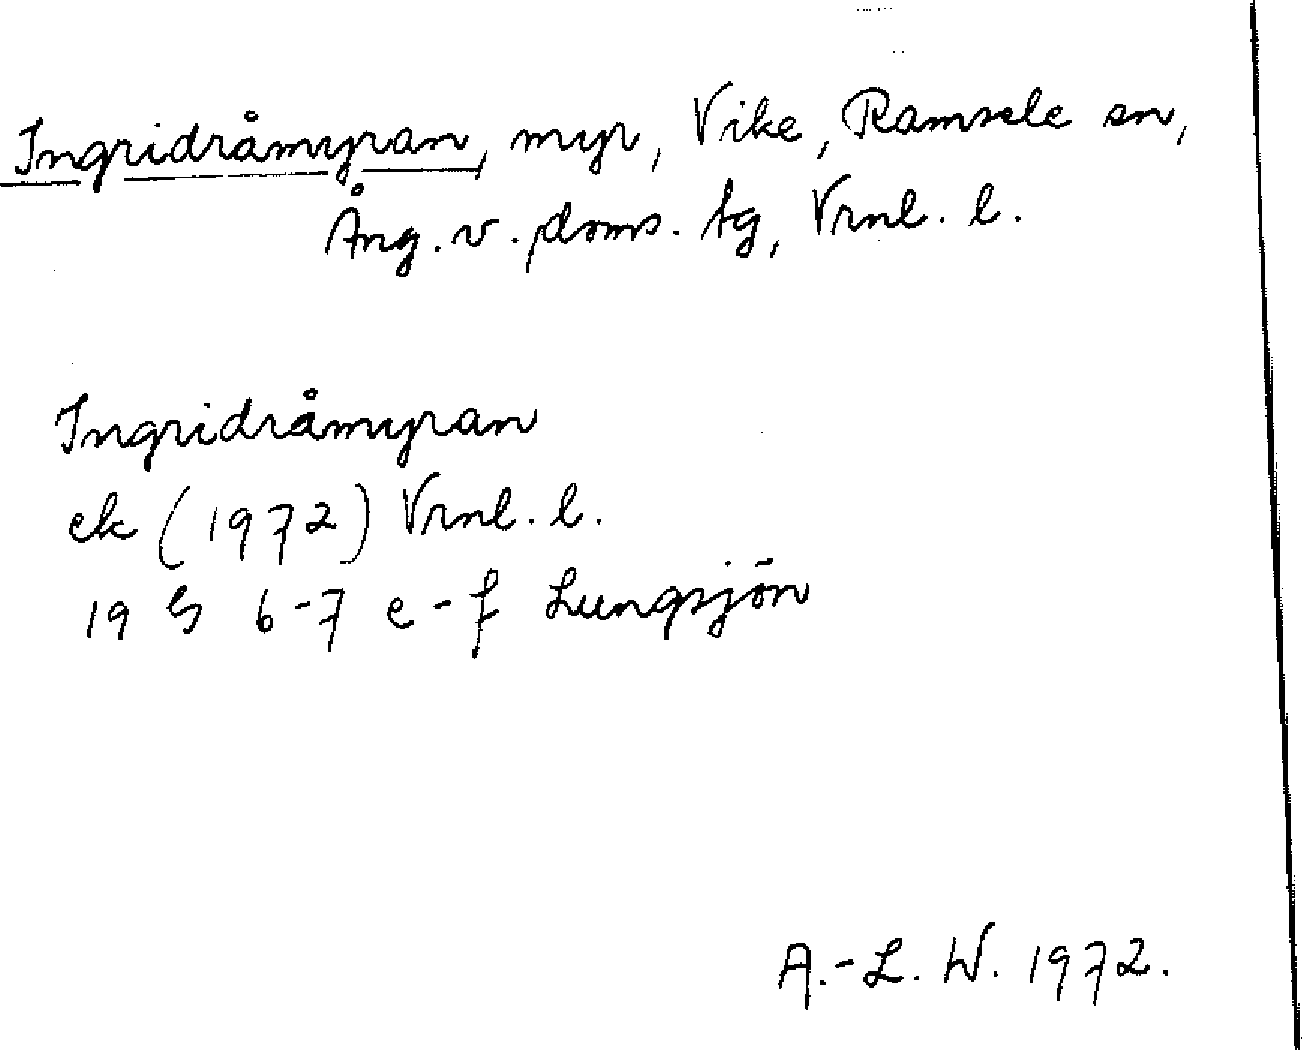 Ingridråmyran, myr, Vike, Ramsele sn,
Ång. v. doms. tg, Vrnl. l.
Ingridråmyran
ek (1972) Vrnl. l.
19 G 6-7 e-f Lungsjön
A.-L. W. 1972.